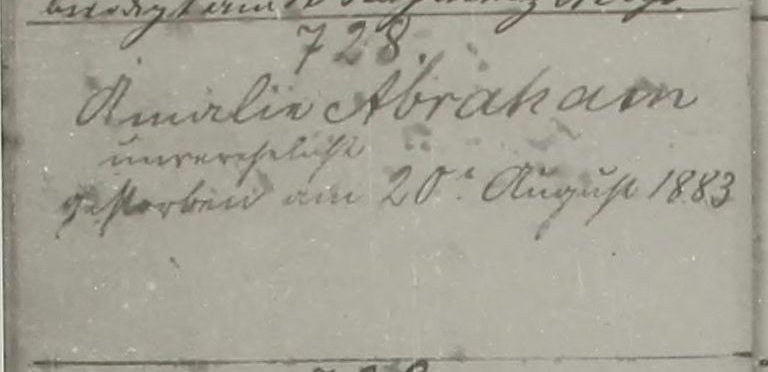 728.
Amalie Abraham
unverehelicht
gestorben am 20t. August 1883